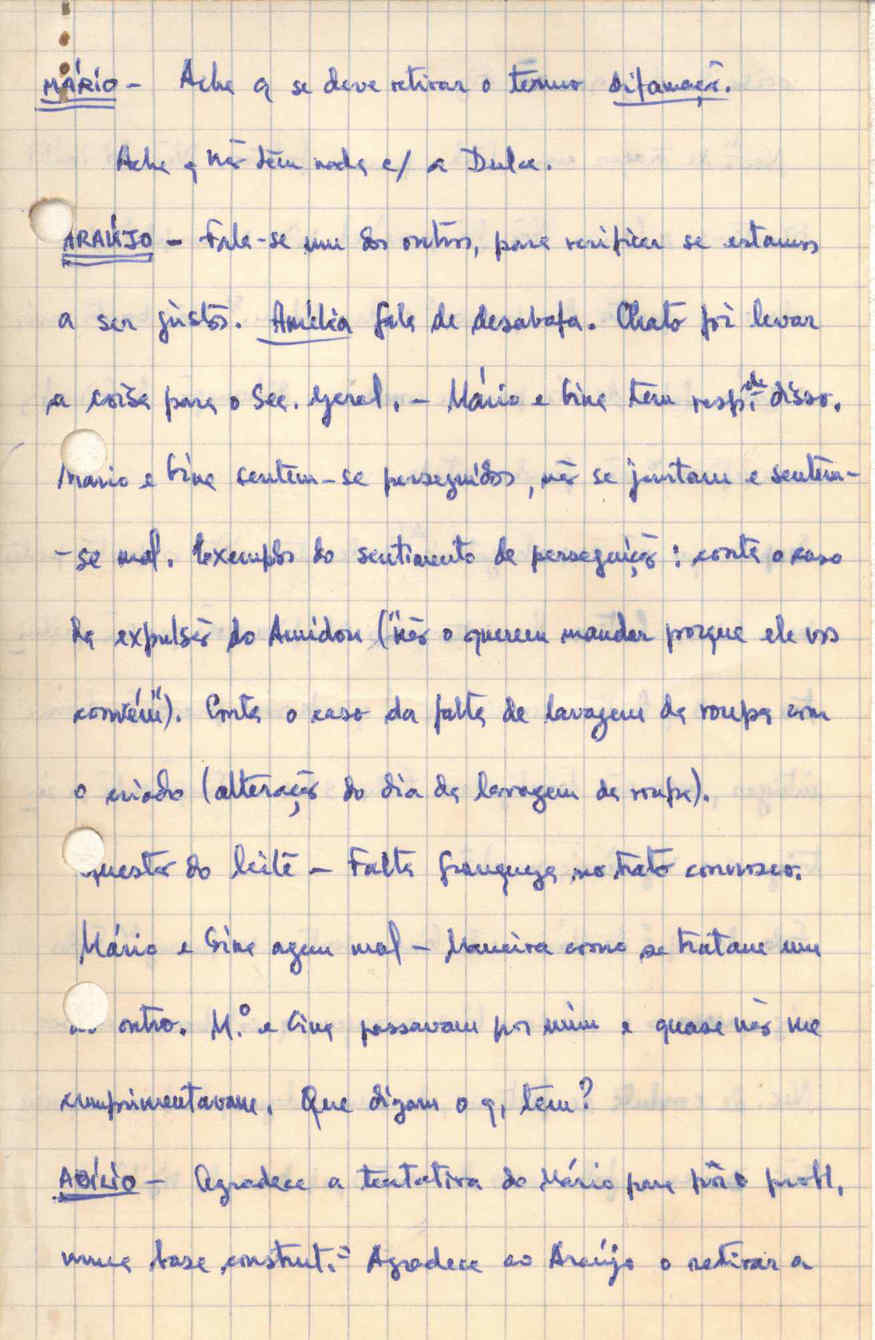 MÁRIO - Acha q se deve retirar o termo difamação.
Acha q não têm nada c/ a Dulce.
ARAÚJO - Fala-se um dos outros, para verificar se estamos
a ser justos. Amélia fala de desabafa. Chato foi levar
a coisa para o Sec. Geral. - Mário e têm resp.de disso.
Mário e sentem-se perseguidos, não se juntam e sentem-
-se mal. Exemplos do sentimento de perseguição: conta o caso
da expulsão do Amidou ("não o querem mandar porque ele vos
convém"). Conta o caso da falta de lavagem da roupa com
o criado (alteração do dia da lavagem da roupa).
questão do leite - Falta franqueza no trato connosco.
Mário e agem mal - Maneira como se tratam um
ao outro. M.º e passavam por mim e quase não me
cumprimentavam. Que digam o q. têm?
ABÍLIO - Agradece a tentativa do Mário para pôr o probl.
numa base construt.ª Agradece ao Araújo o retirar a